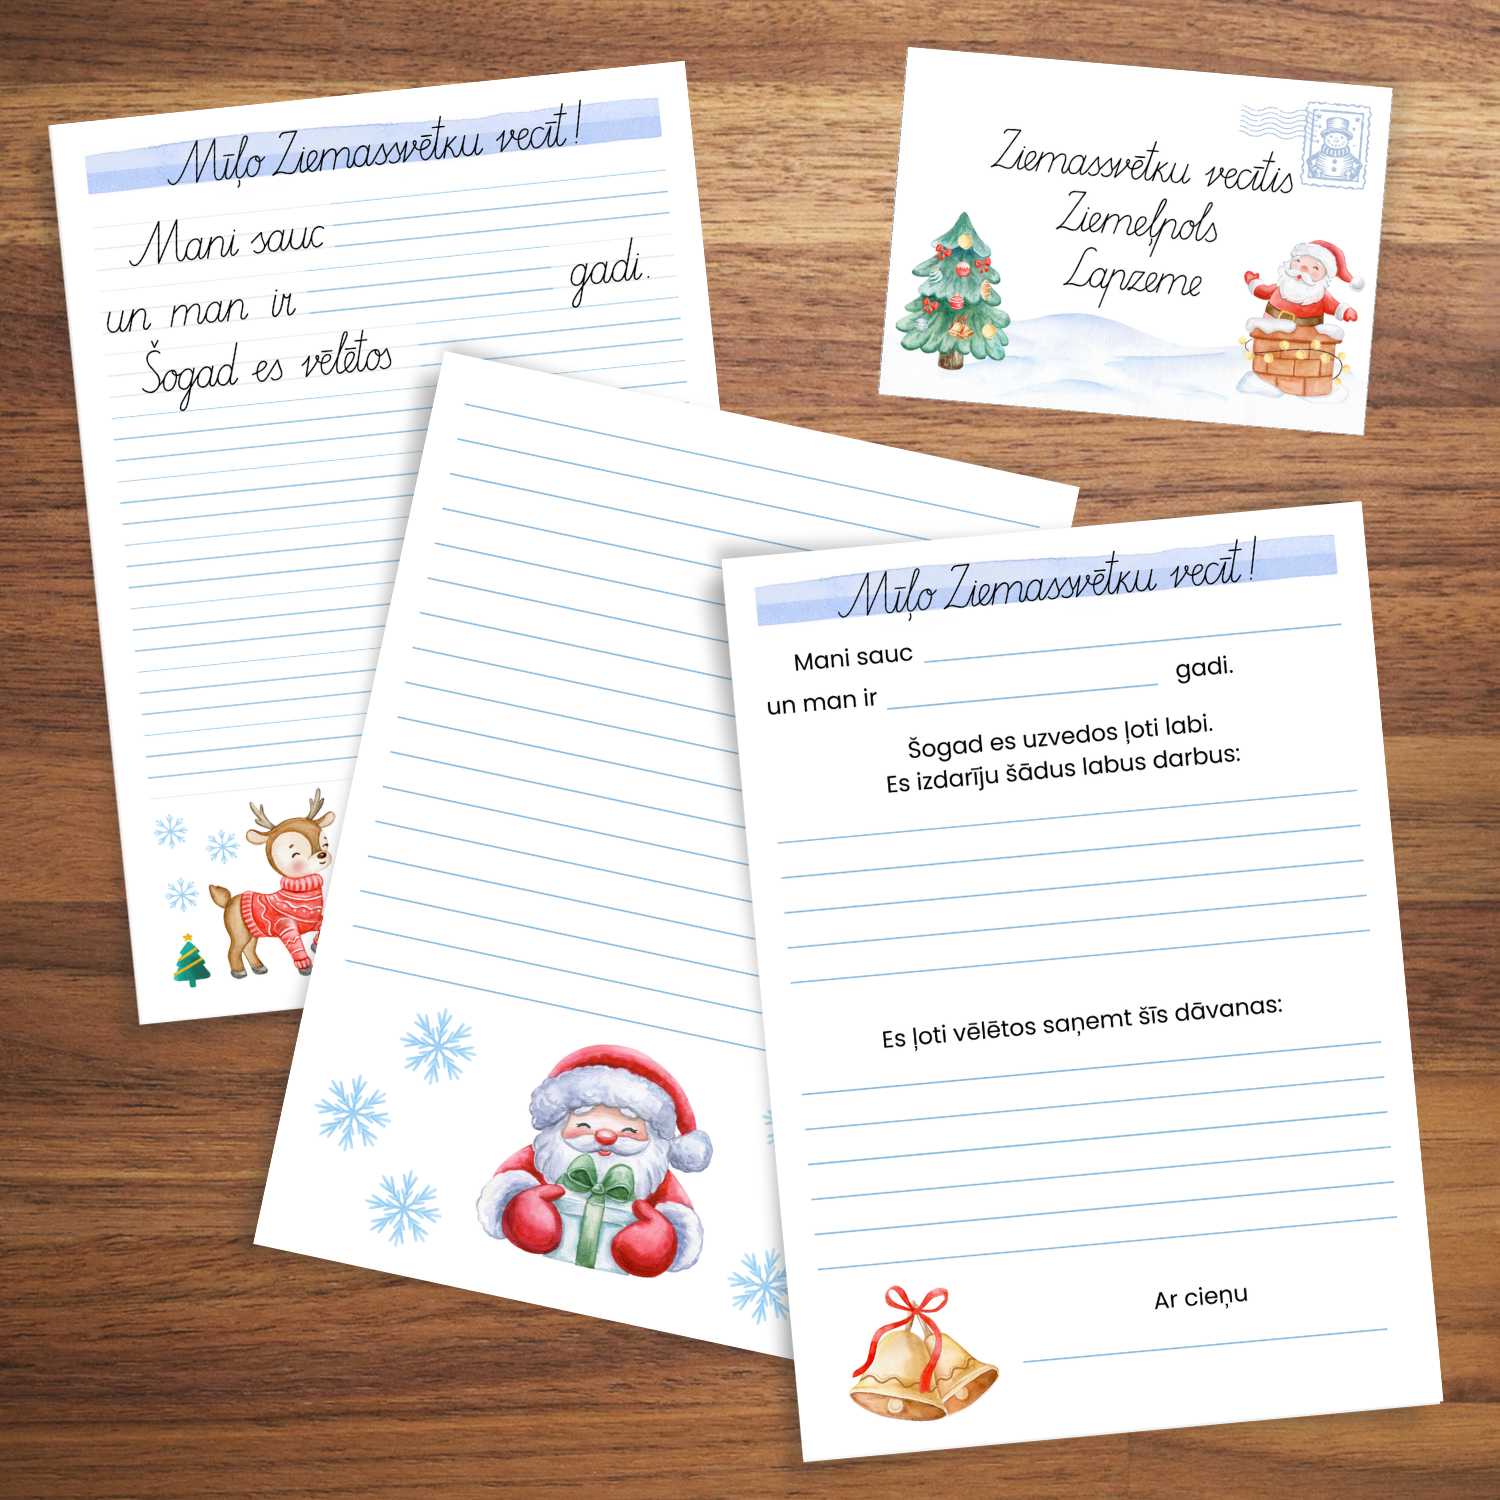 Mīļo Ziemassvētku vecīt!
Mani sauc
un man ir gadi.
Šogad es vēlētos
Ziemassvētku vecītis
Ziemeļpols
Lapzeme
Mīļo Ziemassvētku vecīt!
Mani sauc
un man ir gadi.
Šogad es uzvedos ļoti labi.
Es izdarīju šādus labus darbus:
Es ļoti vēlētos saņemt šīs dāvanas:
Ar cieņu